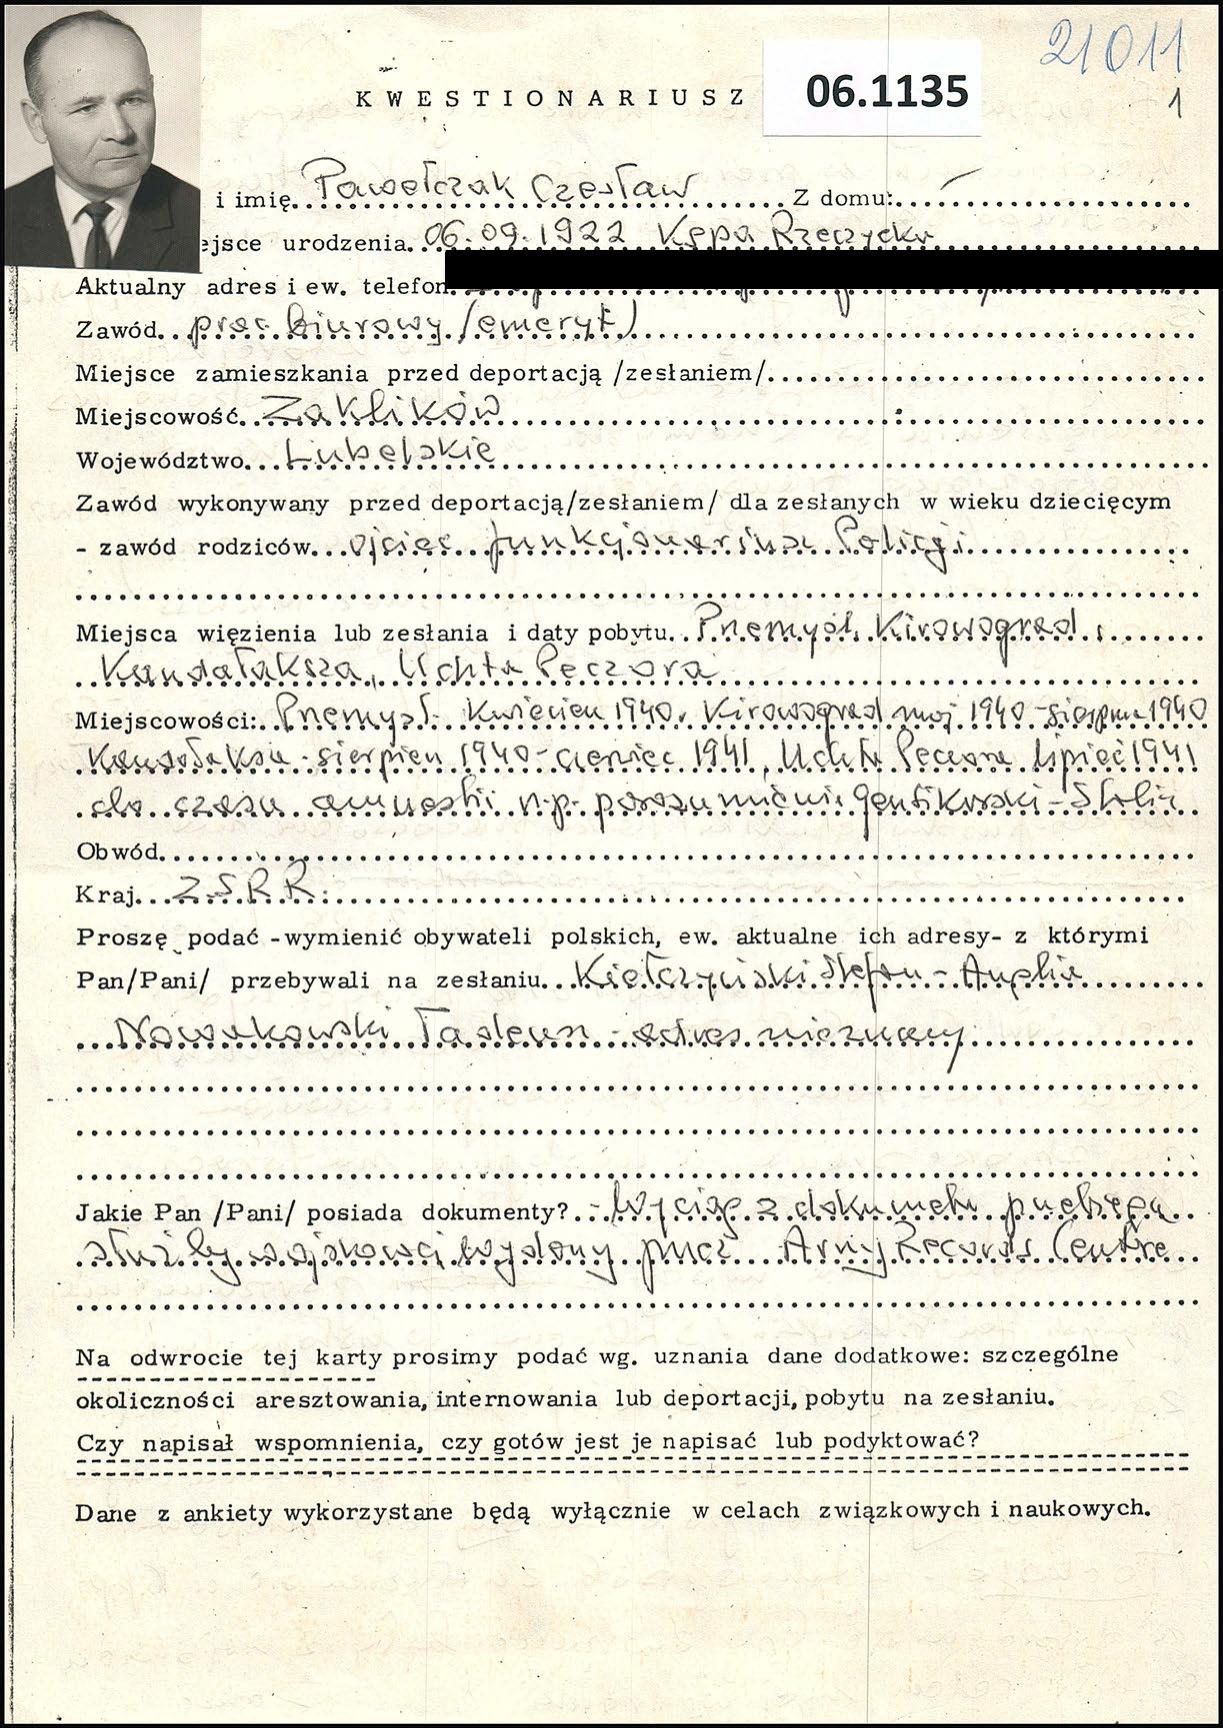 21011
KWESTIONARIUSZ
06.1135
1
i imię Pawełczak Czesław Z domu: —
ejsce urodzenia 06.09.1922 Kępa Rzeczycka
Aktualny adres i ew. telefon
Zawód prac. biurowy /emeryt/
Miejsce zamieszkania przed deportacją /zesłaniem/
Miejscowość Zaklików
Województwo Lubelskie
Zawód wykonywany przed deportacją/zesłaniem/ dla zesłanych w wieku dziecięcym
- zawód rodziców ojciec funkcjonariusz Policji
Miejsca więzienia lub zesłania i daty pobytu Przemyśl, Kirowograd,
Kandałaksza, Uchta Peczora
Miejscowości: Przemyśl - kwiecień 1940, Kirowograd maj 1940 - sierpnia 1940
sierpień 1940 - czerwiec 1941, Uchta Peczora lipiec 1941
do czasu amnestii n.p. porozumienie
Obwód
Kraj Z.S.R.R.
Proszę podać -wymienić obywateli polskich, ew. aktualne ich adresy- z którymi
Pan/Pani/ przebywali na zesłaniu Kiełczyński Stefan - Anglia
Nowakowski Tadeusz - adres nieznany
Jakie Pan /Pani/ posiada dokumenty? - Wyciąg z dokumentu przebiegu
służby wojskowej, wydany przez Army Records Centre
Na odwrocie tej karty prosimy podać wg. uznania dane dodatkowe: szczególne
okoliczności aresztowania, internowania lub deportacji, pobytu na zesłaniu.
Czy napisał wspomnienia, czy gotów jest je napisać lub podyktować?
Dane z ankiety wykorzystane będą wyłącznie w celach związkowych i naukowych.